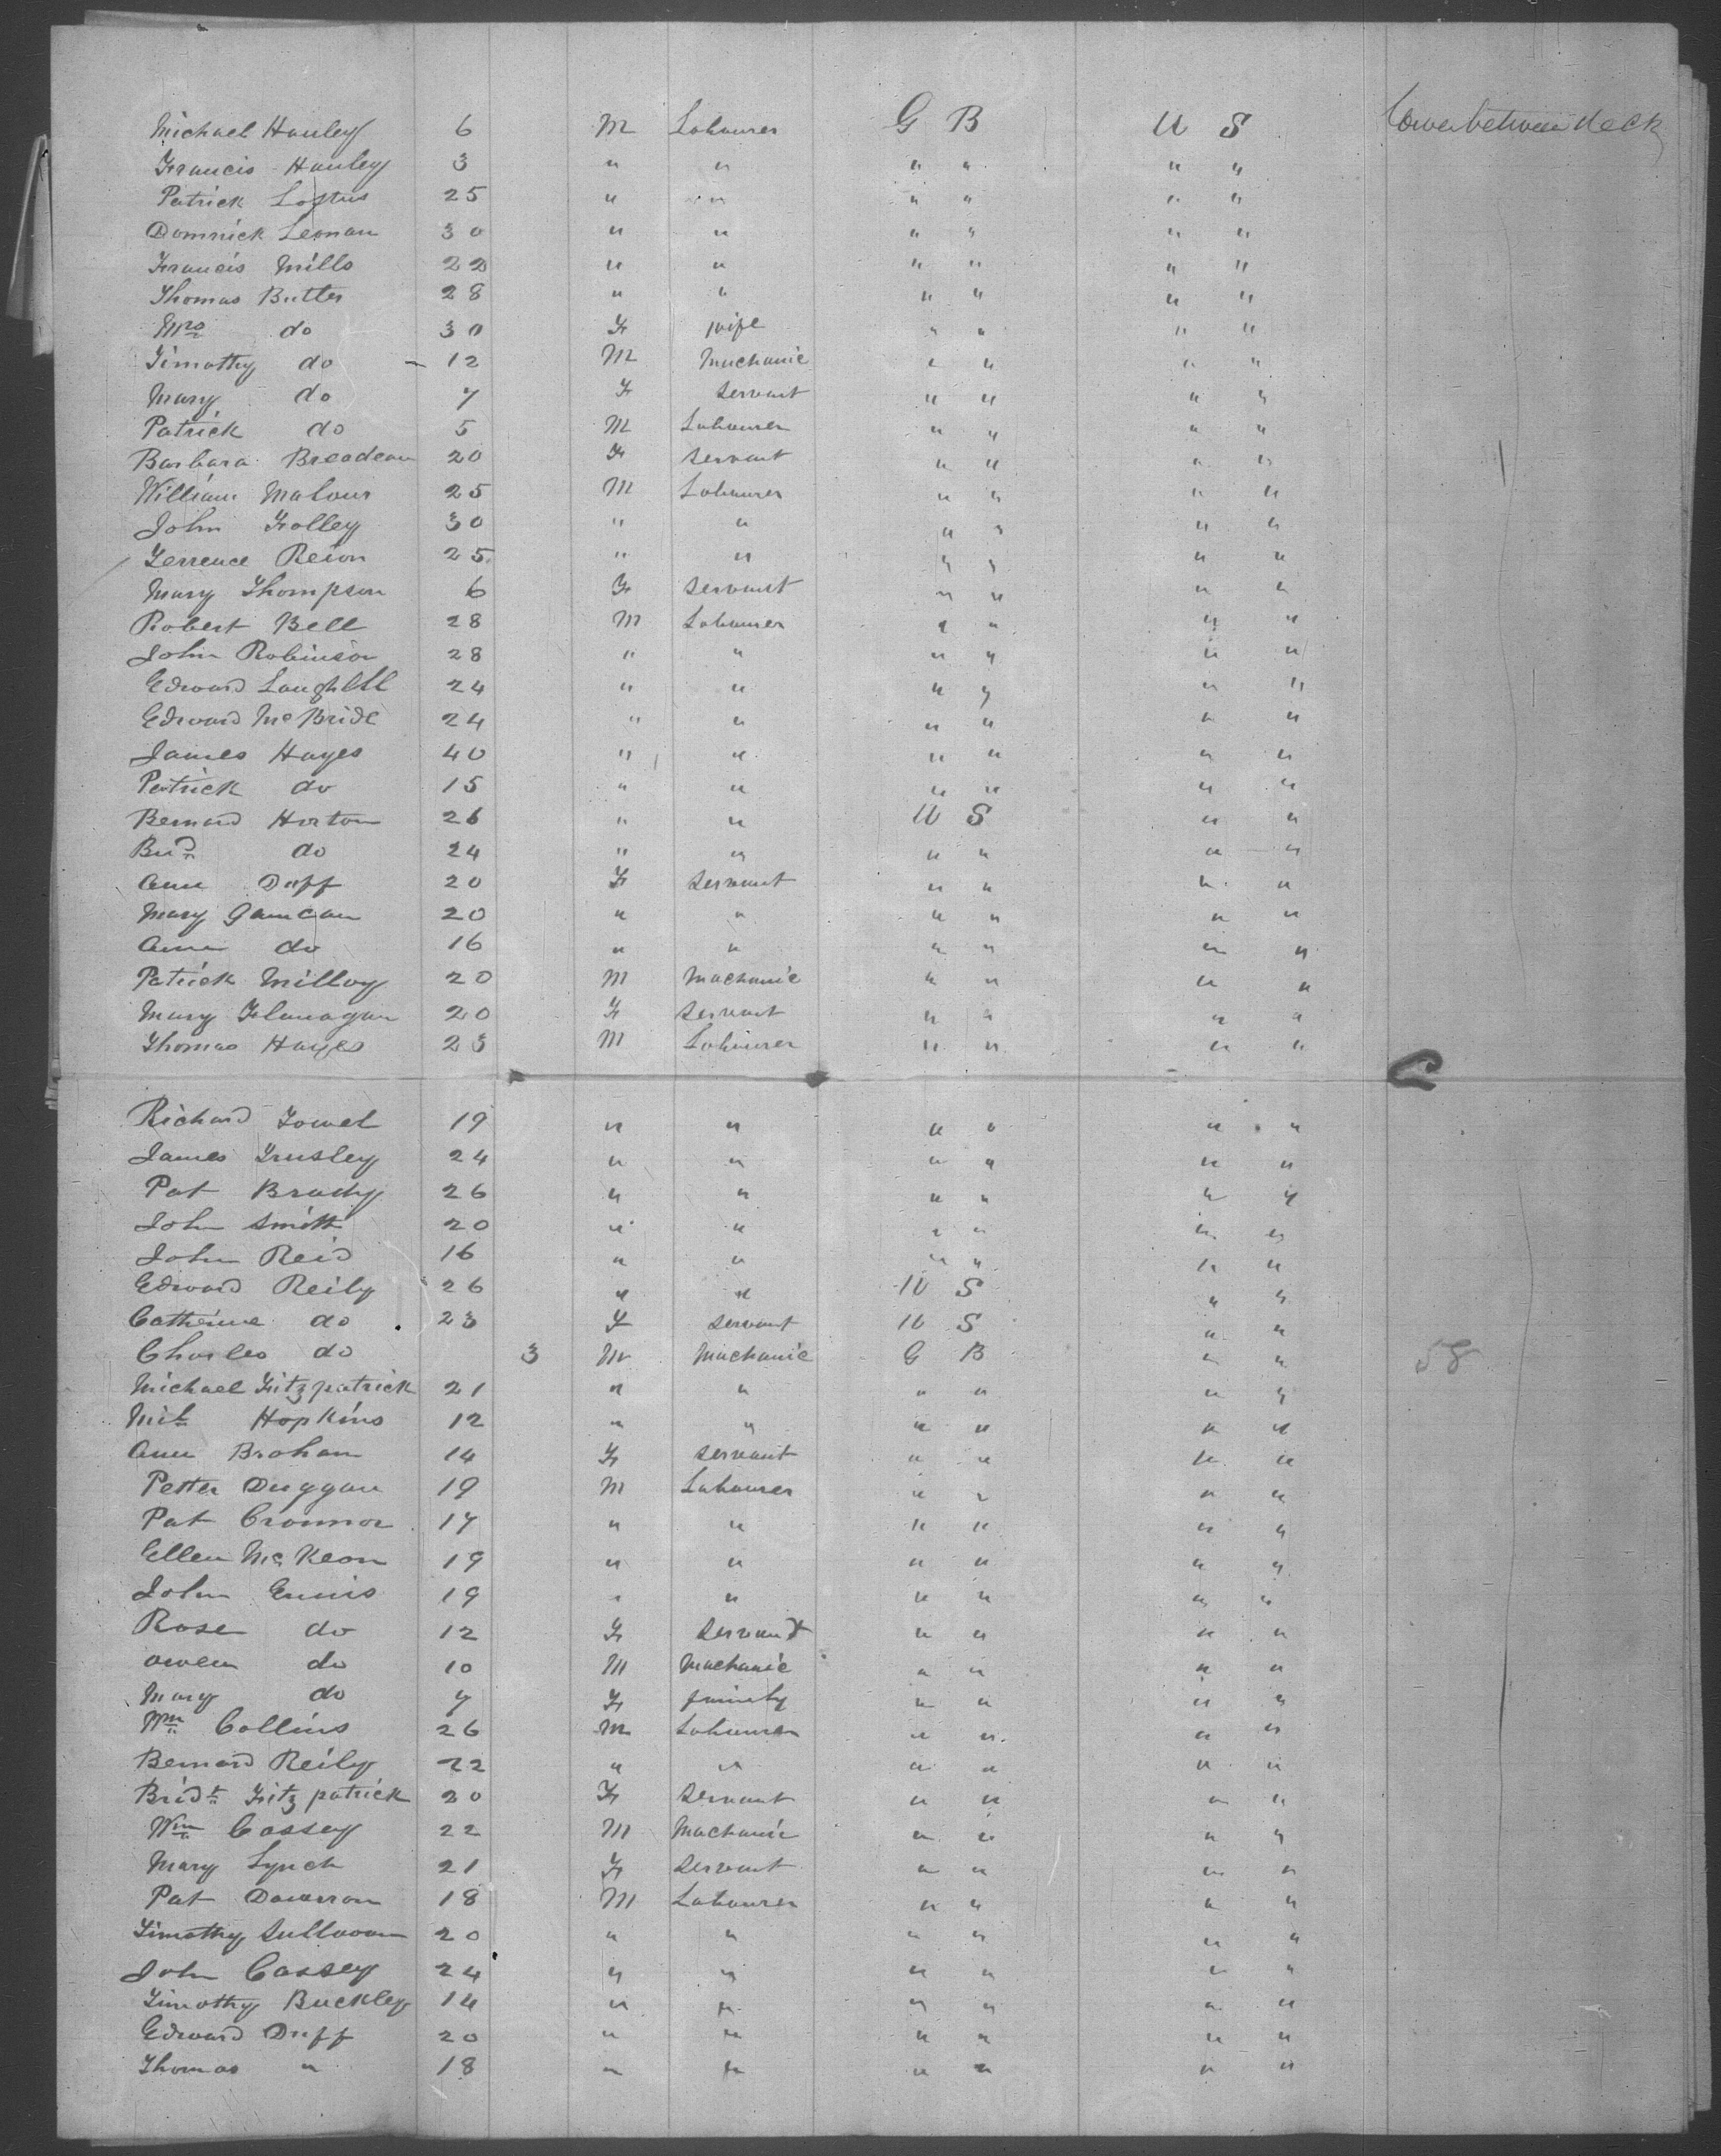 Michael Hanley 6 M Labourer G B U S Lower between deck
Francis Hanley 3 " " " " " "
Patrick Loftus 25 " " " " " "
Domnick Leonan 30 " " " " " "
Francis Mills 22 " " " " " "
Thomas Butler 28 " " " " " "
Mrs do 30 F wife " " " "
Timothy do - 12 M Machanic " " " "
Mary do 7 F Servant " " " "
Patrick do 5 M Labourer " " " "
Barbara Breadean 20 F Servant " " " "
William Malour 25 M Labourer " " " "
John Folley 30 " " " " " "
Terrence Reion 25 " " " " " "
Mary Thompson 6 F Servant " " " "
Robert Bell 28 M Labourer " " " "
John Robinson 28 " " " " " "
Edward 24 " " " " " "
Edward McBride 24 " " " " " "
James Hayes 40 " " " " " "
Patrick do 15 " " " " " "
Bernard Horton 26 " " U S " "
Brid do 24 " " " " " "
Ann Duff 20 F Servant " " " "
Mary Gancan 20 " " " " " "
Ann do 16 " " " " " "
Patrick Milloy 20 M Machanic " " " "
Mary Flanagan 20 F Servant " " " "
Thomas Hayes 23 M Labourer " " " "
Richard Towel 19 " " " " " "
James 24 " " " " " "
Pat Brady 26 " " " " " "
John Smith 20 " " " " " "
John Reid 16 " " " " " "
Edward Reily 26 " " U S " "
Catherine do 23 F Servant U S " "
Charles do 3 M Machanic G B " " 58
Michael Fitzpatrick 21 " " " " " "
Mil Hopkins 12 " " " " " "
Ann Brohan 14 F Servant " " " "
Petter Duggan 19 M Labourer " " " "
Pat Cronnor 17 " " " " " "
Ellen McKeon 19 " " " " " "
John Ennis 19 " " " " " "
Rose do 12 F Servant " " " "
Owen do 10 M Machanic " " " "
Mary do 7 F family " " " "
Wm Collins 26 M Labourer " " " "
Bernard Reily 22 " " " " " "
Bridt Fitzpatrick 20 F Servant " " " "
Wm Cassey 22 M Machanic " " " "
Mary Lynch 21 F Servant " " " "
Pat Dawson 18 M Labourer " " " "
Timothy Sullovan 20 " " " " " "
John Cassey 24 " " " " " "
Timothy Buckley 14 " " " " " "
Edward Duff 20 " " " " " "
Thomas " 18 " " " " " "